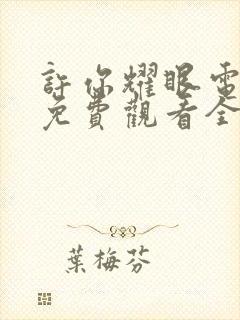 許你耀眼電
免費觀看全
葉梅芬